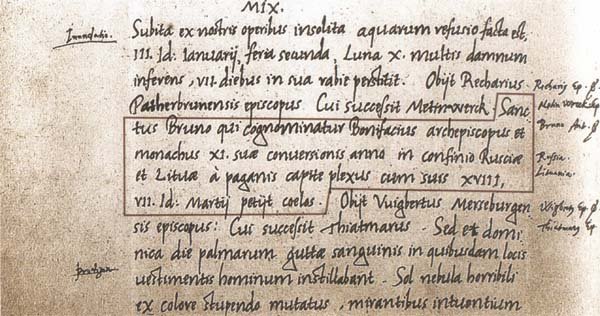 MIX.
Inundatio. Subita ex nostris operibus insolita aquarum refusio facta est,
III. Id: Ianuarij, feria secunda, Luna X. multis damnum
inferens, VII. diebus in sua rabie perstitit. Obijt Recharius
Patherbrunensis episcopus Cui successit Sanc
tus Bruno qui cognominatur Bonifacius archepiscopus et Bruno
monachus XI. suæ conversionis anno in confinio Rusciæ Russia.
et Lituæ à paganis capite plexus cum suis XVIII, Lituania.
VII. Id: Martij petijt coelos. Obijt Vuigbertus Merseburgen
sis episcopus: Cui successit Thiatmarus. Sed et domi
nica die palmarum guttæ sanguinis in quibusdam locis
vestimentis hominum instillabant. Sol nebula horribili
ex colore stupendo mutatus, mirantibus intuentium